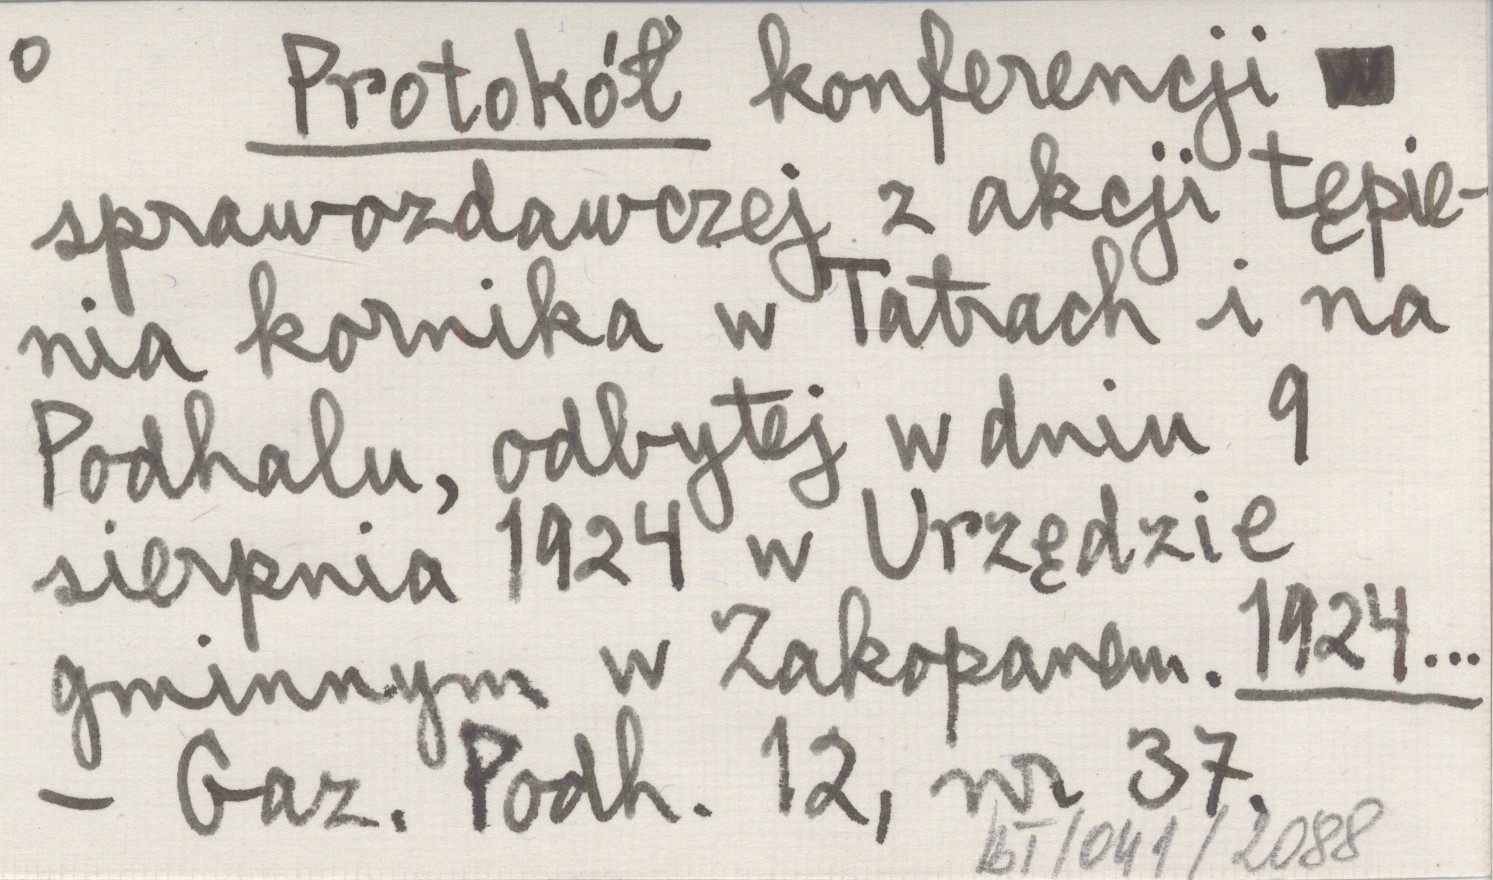 o Protokół konferencji
sprawozdawczej z akcji tępie-
nia kornika w Tatrach i na
Podhalu, odbytej w dniu 9
sierpnia 1924 w Urzędzie
gminnym w Zakopanem. 1924...
– Gaz. Podh. 12, nr 37.
bT/041/2088